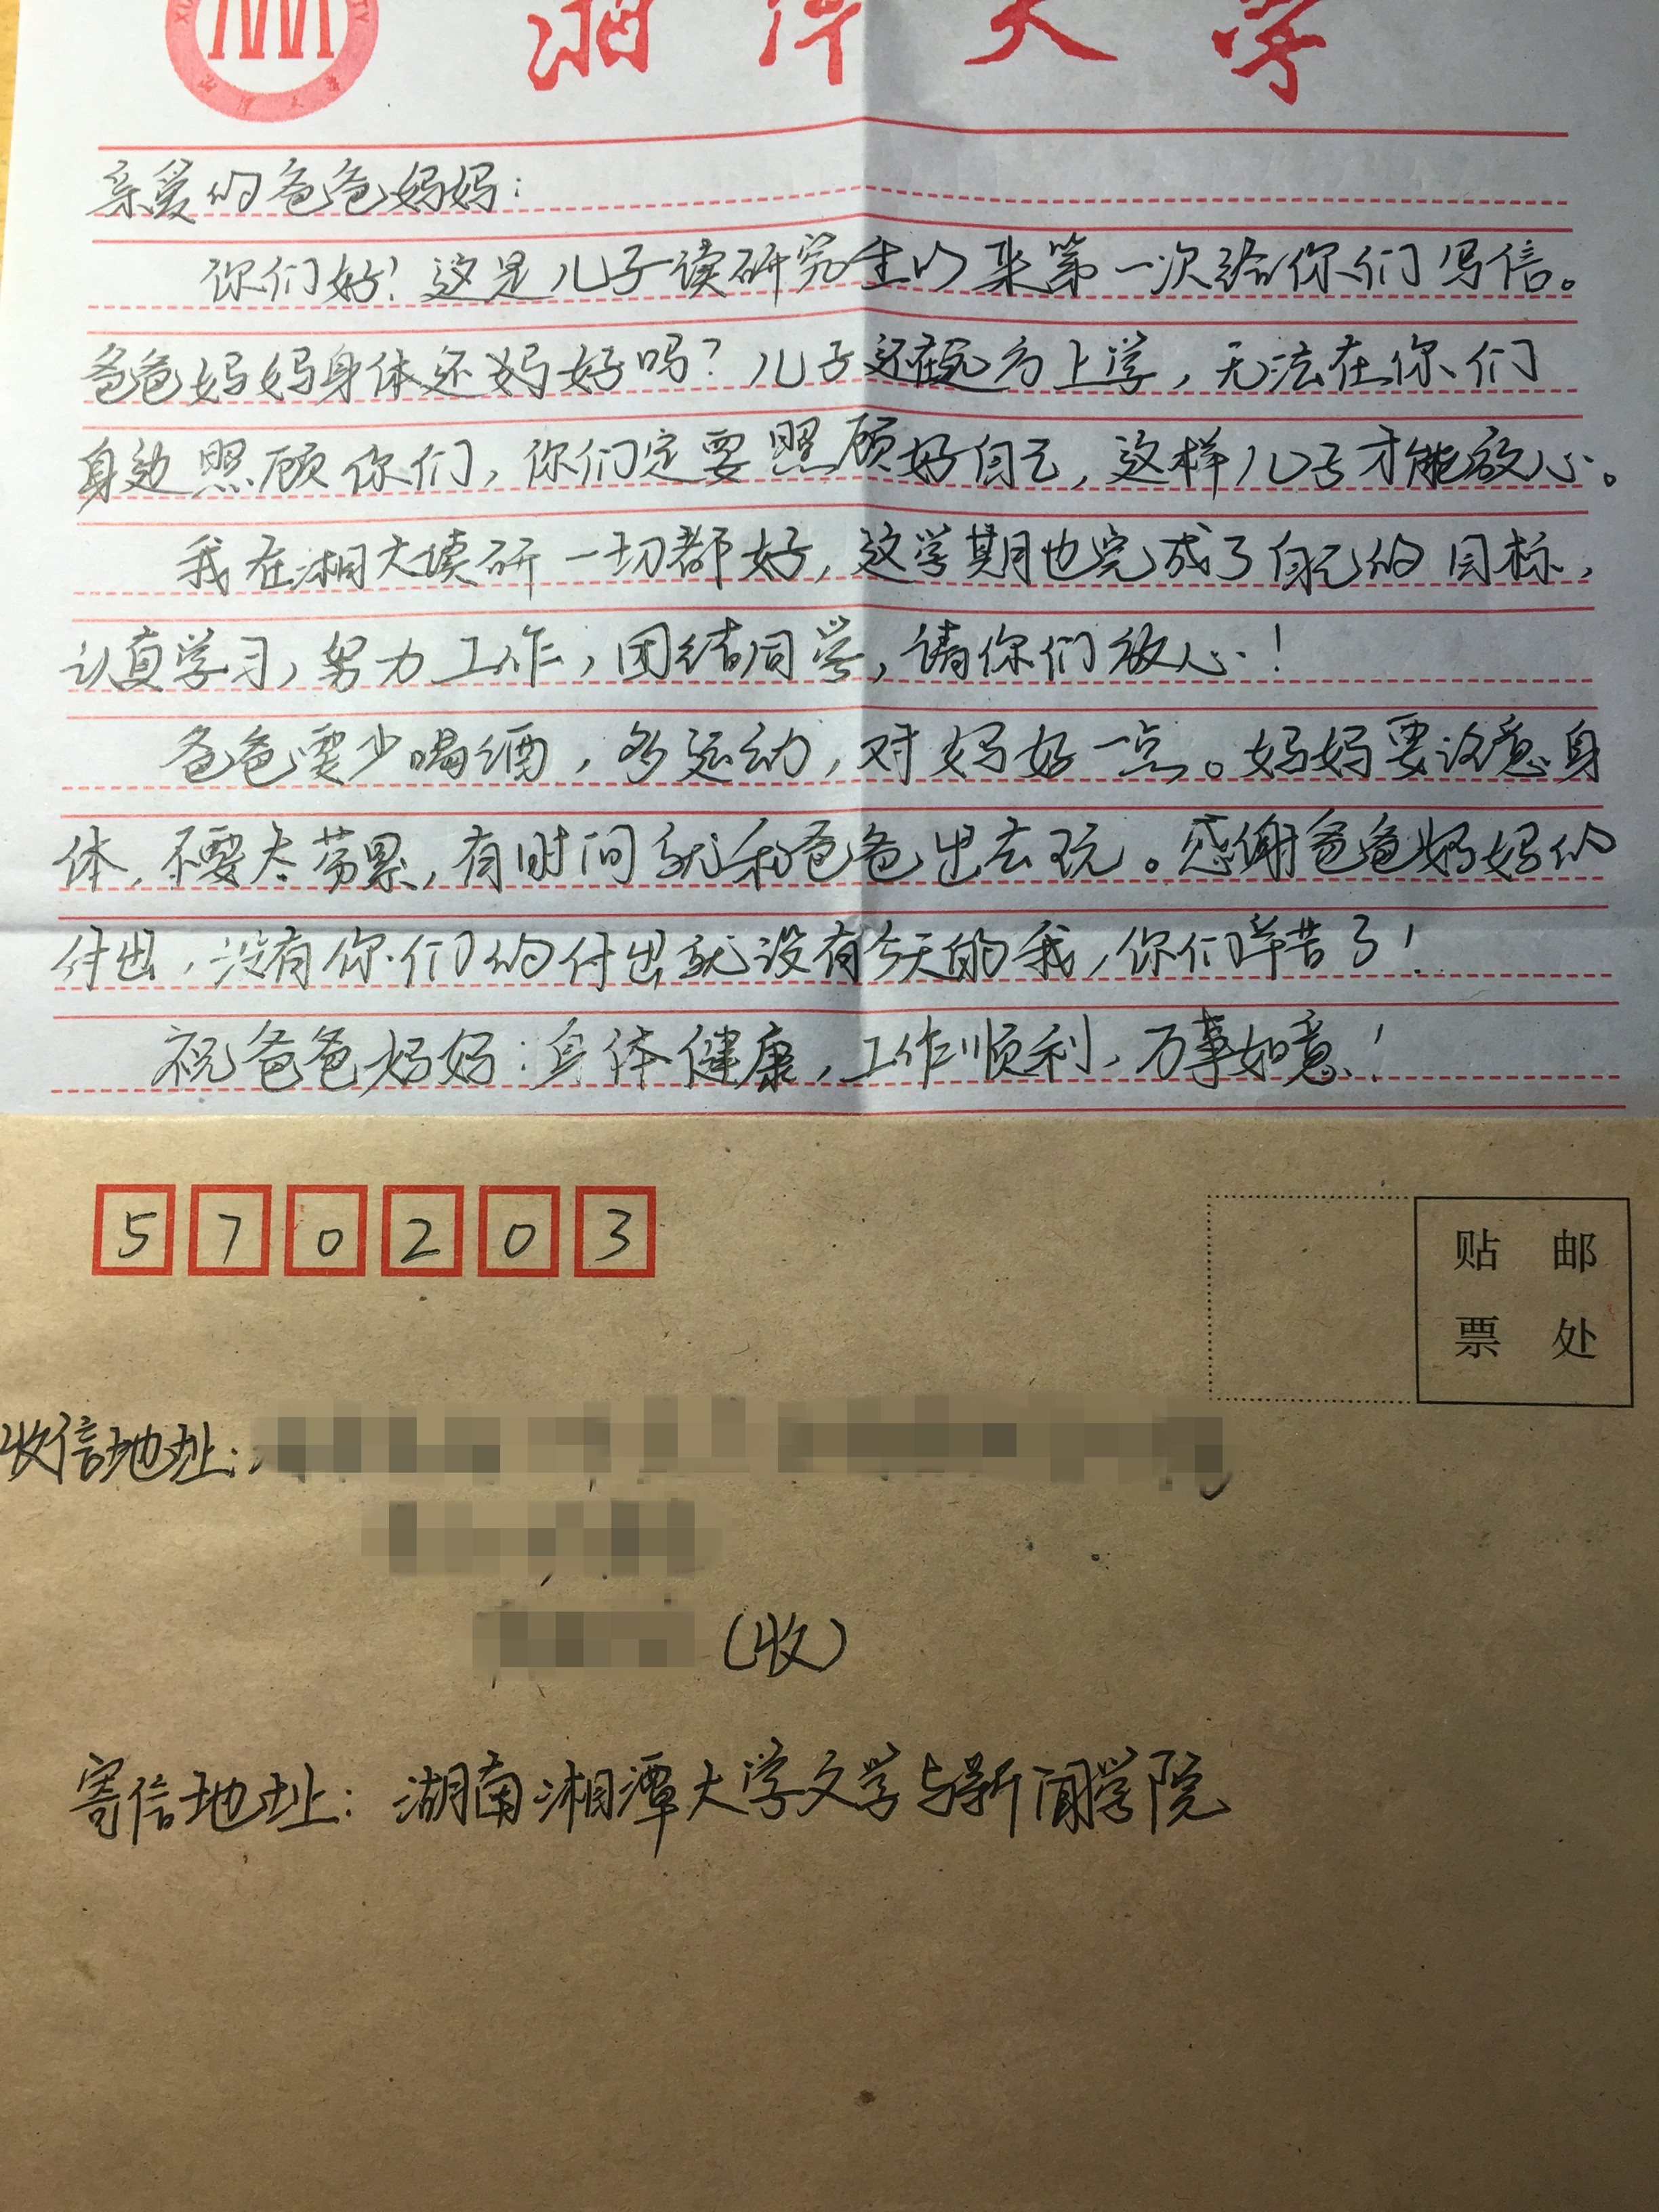 湘潭大学
亲爱的爸爸妈妈：
你们好！这是儿子读研究生以来第一次给你们写信。
爸爸妈妈身体还妈好吗？儿子还在远方上学，无法在你们
身边照顾你们，你们定要照顾好自己，这样儿子才能放心。
我在湘大读研一切都好，这学期也完成了自己的目标，
认真学习，努力工作，团结同学，请你们放心！
爸爸要少喝酒，多运动，对妈好一点。妈妈要注意身
体，不要太劳累，有时间就和爸爸出去玩。感谢爸爸妈妈的
付出，没有你们的付出就没有今天的我，你们辛苦了！
祝爸爸妈妈：身体健康，工作顺利，万事如意！
570203
贴邮
票处
收信地址：
（收）
寄信地址：湖南湘潭大学文学与新闻学院